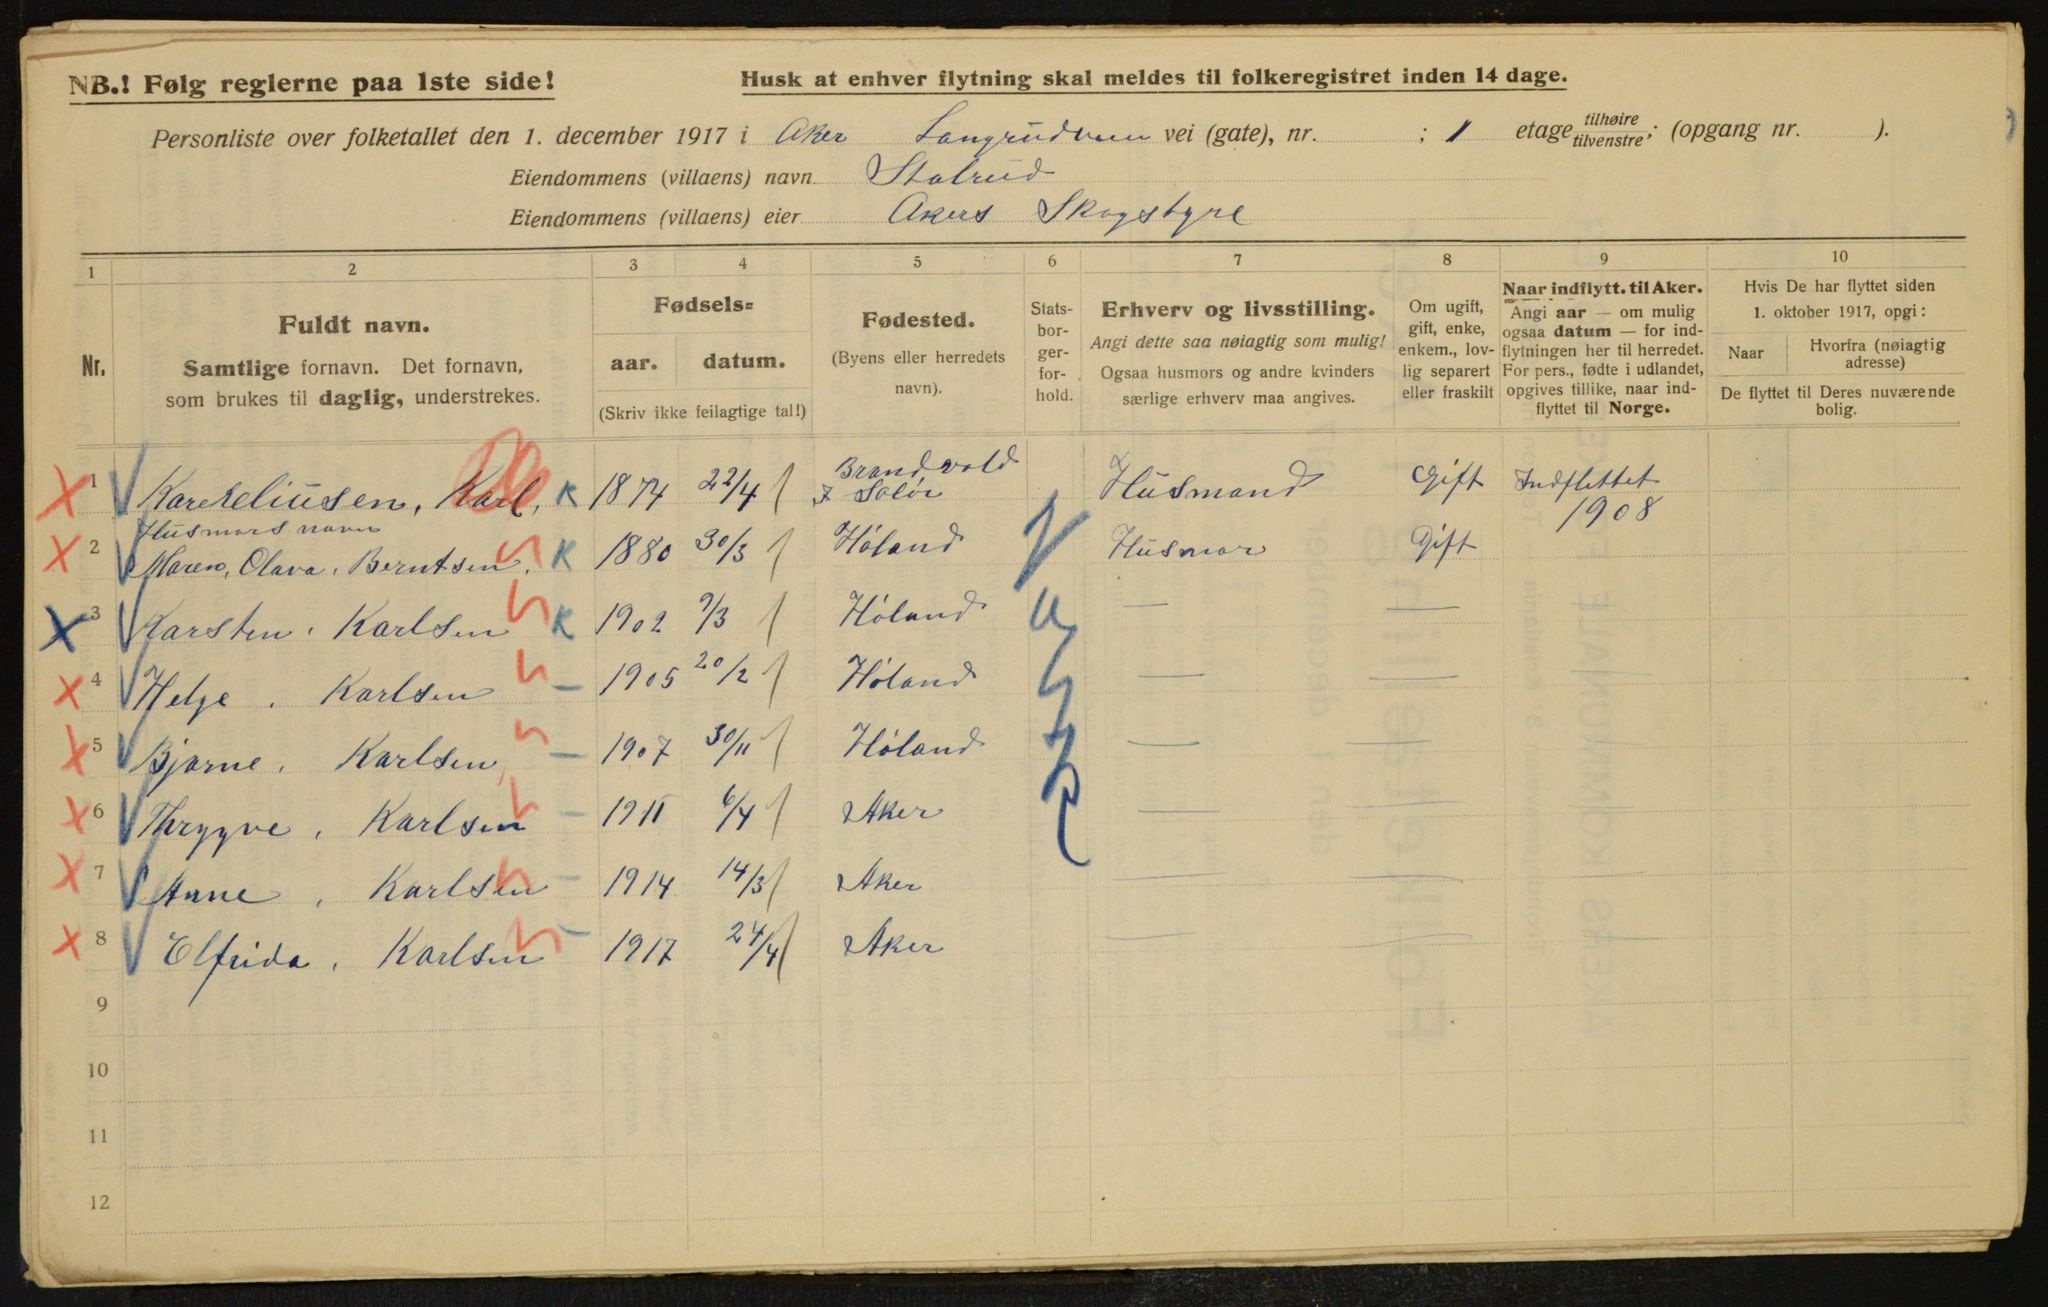 NB.! Følg reglerne paa 1ste side!
Husk at enhver flytning skal meldes til folkeregistret inden 14 dage.
Personliste over folketallet den 1. december 1917 i Aker vei (gate), nr. ; 1 etage tilhøire tilvenstre; (opgang nr. ).
Eiendommens (villaens) navn Stalrud
Eiendommens (villaens) eier Akers Skogstyre
1 2 3 4 5 6 7 8 9 10
Nr.
Fuldt navn.
Samtlige fornavn. Det fornavn,
som brukes til daglig, understrekes.
Fødsels=
aar. datum.
(Skriv ikke feilagtige tal!)
Fødested.
(Byens eller herredets
navn).
Stats-
bor-
ger-
for-
hold.
Erhverv og livsstilling.
Angi dette saa nøiagtig som mulig!
Ogsaa husmors og andre kvinders
særlige erhverv maa angives.
Om ugift,
gift, enke,
enkem., lov-
lig separert
eller fraskilt
Naar indflytt. til Aker.
Angi aar — om mulig
ogsaa datum — for ind-
flytningen her til herredet.
For pers., fødte i udlandet,
opgives tillike, naar ind-
flyttet til Norge.
Hvis De har flyttet siden
1. oktober 1917, opgi:
Naar
Hvorfra (nøiagtig
adresse)
De flyttet til Deres nuværende
bolig.
1 Karl, K 1874 22/4 Brandvold Solør Husmand Gift Indflettet 1908
Husmors navn
2 Maren, Olava, Berntsen, K 1880 30/3 Høland Husmor Gift
3 Karsten, Karlsen K 1902 9/3 Høland — —
4 Helge, Karlsen — 1905 20/2 Høland — —
5 Bjarne, Karlsen, — 1907 30/11 Høland — —
6 Thrygve, Karlsen — 1911 6/4 Aker — —
7 Anne, Karlsen — 1914 14/3 Aker — —
8 Elfrida, Karlsen — 1917 24/4 Aker — —
9
10
11
12